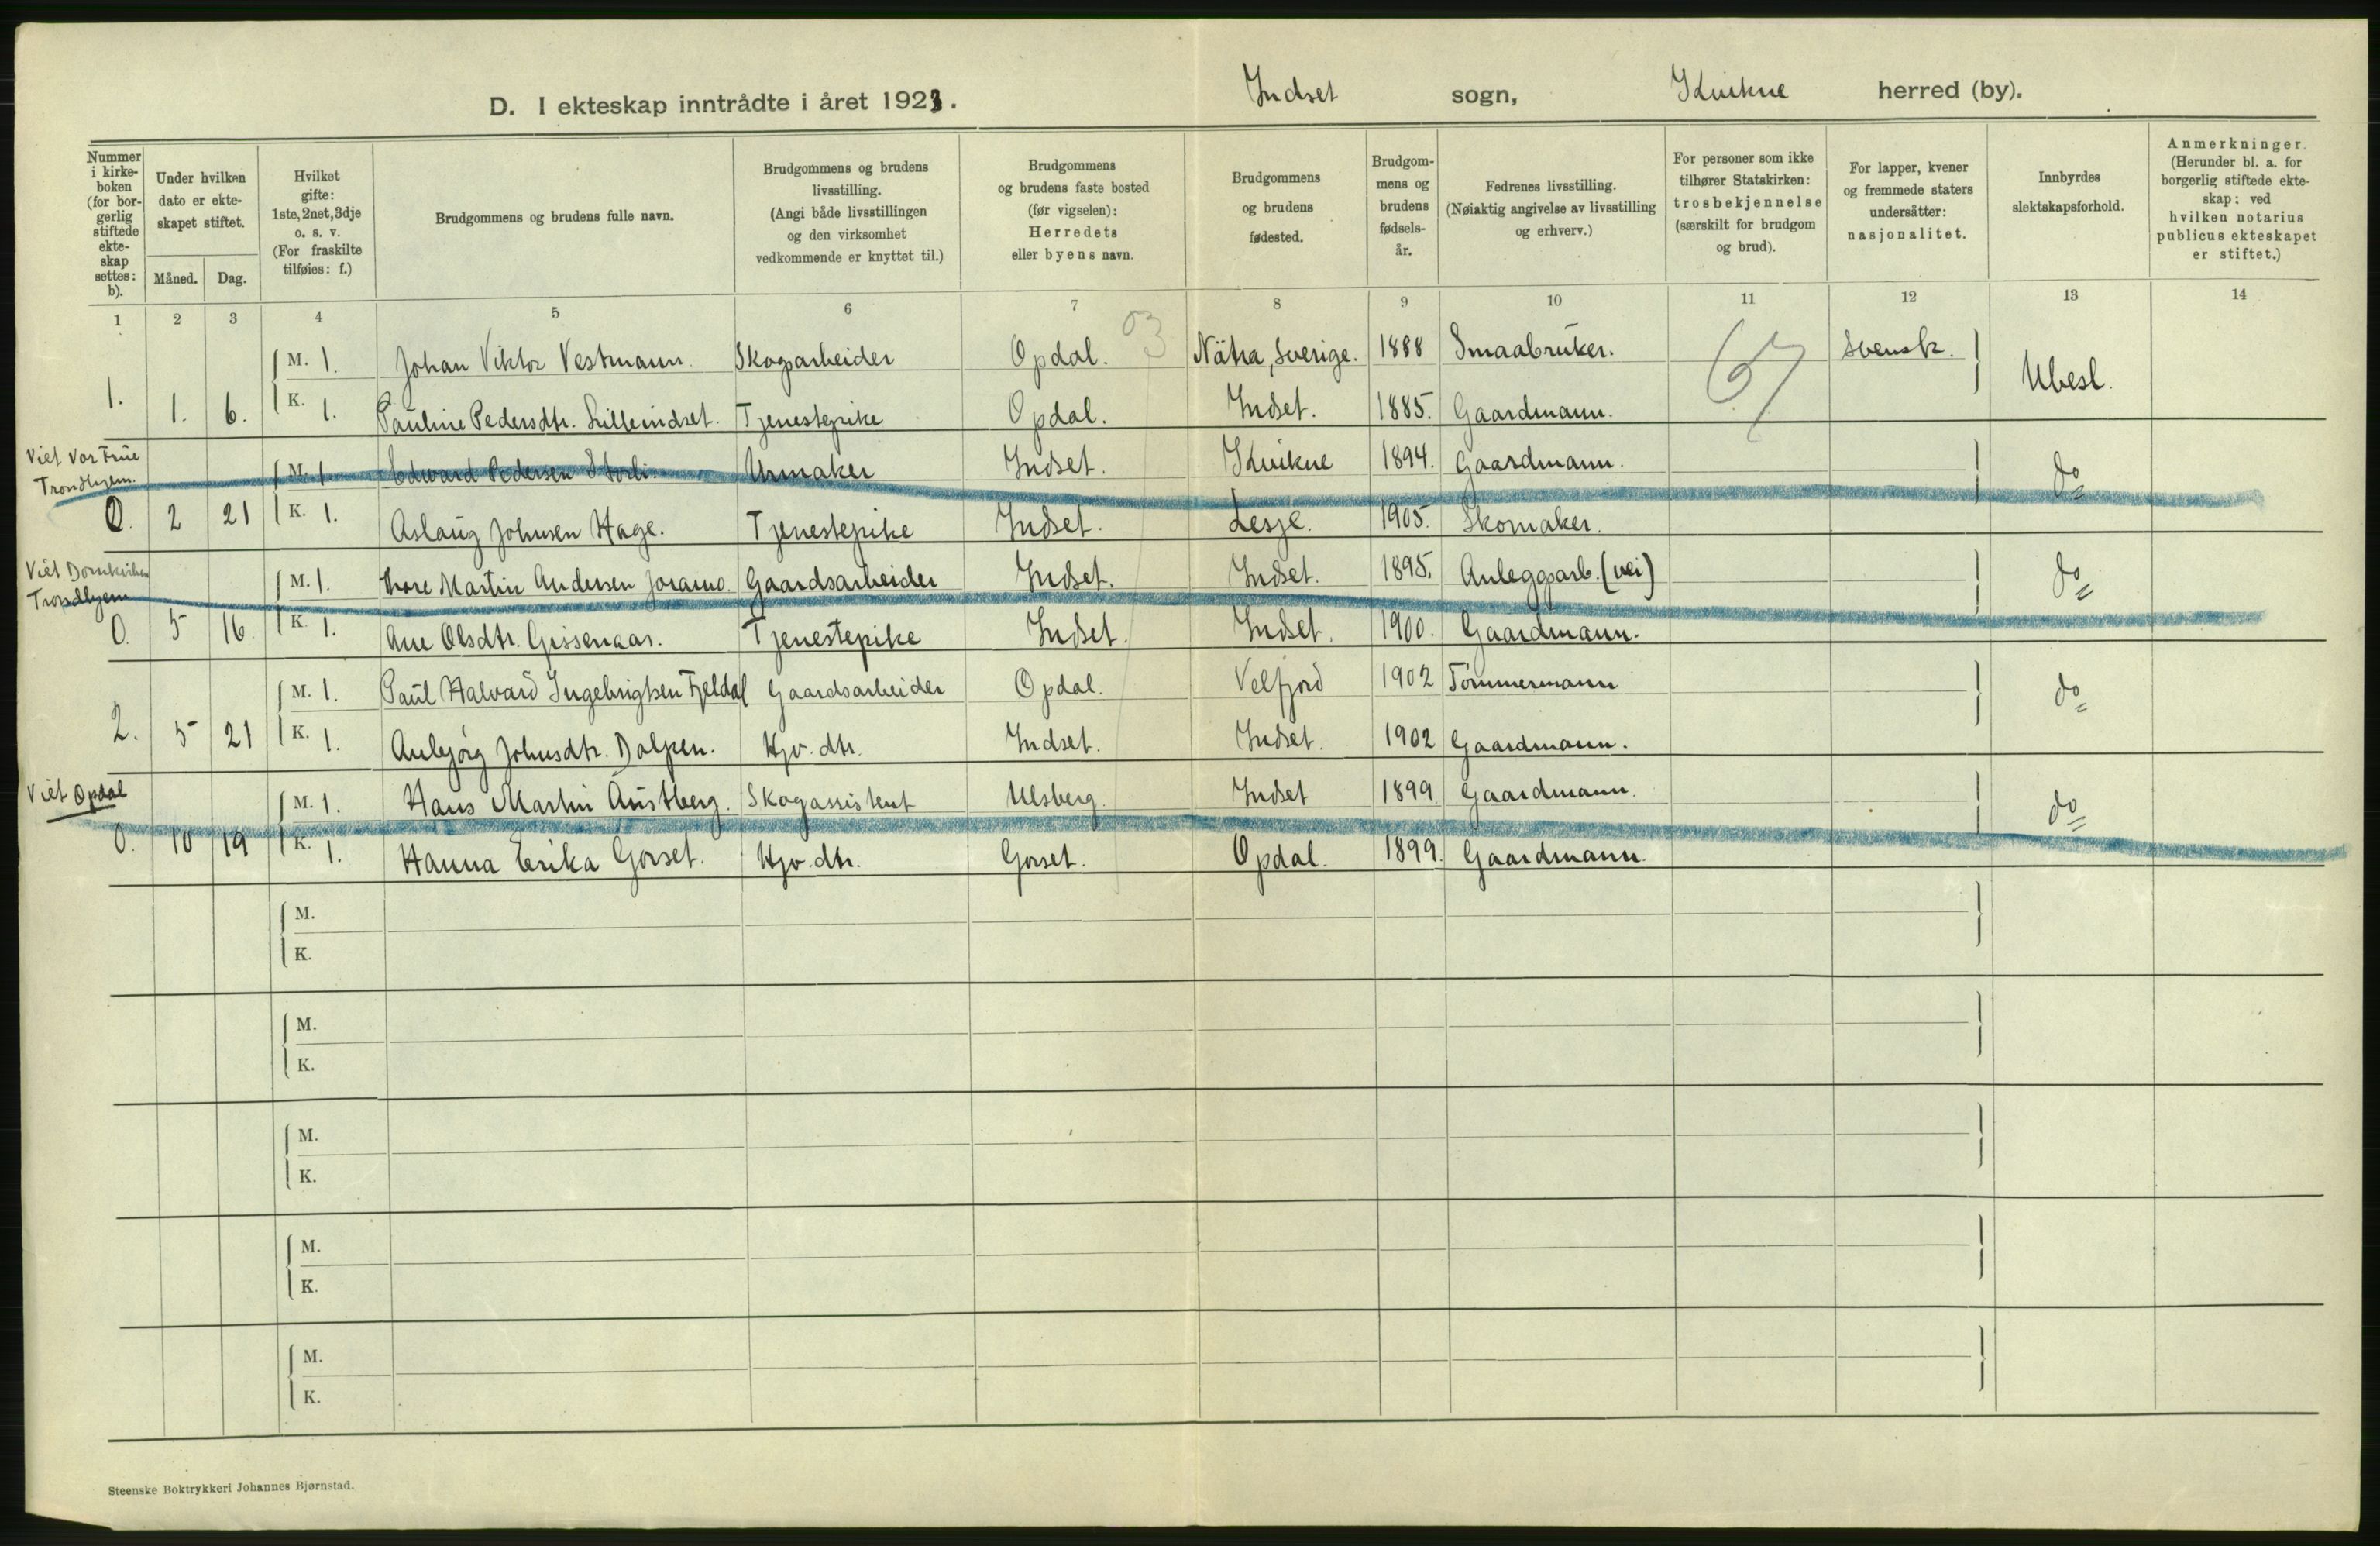 D. I ekteskap inntrådte i året 1923. Indset sogn, Kvikne herred (by).
Nummer i kirke-boken (for bor-gerlig stiftede ekte-skap settes: b).
Under hvilken dato er ekte-skapet stiftet.
Måned. Dag.
Hvilket gifte: 1ste, 2net, 3dje o. s. v. (For fraskilte tilføies: f.)
Brudgommens og brudens fulle navn.
Brudgommens og brudens livsstilling. (Angi både livsstillingen og den virksomhet vedkommende er knyttet til.)
Brudgommens og brudens faste bosted (før vigselen): Herredets eller byens navn.
Brudgommens og brudens fødested.
Brudgom-mens og brudens fødsels-år.
Fedrenes livsstilling. (Nøiaktig angivelse av livsstilling og erhverv.)
For personer som ikke tilhører Statskirken: trosbekjennelse (særskilt for brudgom og brud).
For lapper, kvener og fremmede staters undersåtter: nasjonalitet.
Innbyrdes slektskapsforhold.
Anmerkninger. (Herunder bl. a. for borgerlig stiftede ekte-skap: ved hvilken notarius publicus ekteskapet er stiftet.)
1 2 3 4 5 6 7 8 9 10 11 12 13 14
03
67
M. 1. Johan Viktor Vestmann. Skogsarbeider Opdal. Nätra, Sverige. 1888 Smaabruker. Svensk. Ubesl.
1. 1. 6. K. 1. Pauline Pedersdtr. Lilleindset. Tjenestepike Opdal. Indset. 1885. Gaardmann.
Viet Vor Frue
Trondhjem.
M. 1 Edward Pedersen Storli. Urmaker Indset. Kvikne 1894. Gaardmann. do
0. 2 21 K. 1. Aslaug Johnsen Hage. Tjenestepike Indset. Lesje. 1905. Skomaker.
Viet Domkirken
Trondhjem
M. 1. Tore Martin Andersen Joramo. Gaardsarbeider Indset. Indset. 1895. Anleggsarb. (vei) do
0. 5 16. K. 1. Ane Olsdtr. Gissenaas. Tjenestepike Indset. Indset. 1900. Gaardmann.
M. 1. Paul Halvard Ingebrigtsen Fjeldal Gaardsarbeider Opdal. Velfjord 1902 Tömmermann do
2. 5 21 K. 1. Anbjørg Johnsdtr. Dalpen. Hjv. dtr. Indset. Indset. 1902 Gaardmann.
Viet Opdal
M. 1. Hans Martin Austberg. Skogassistent Ulsberg. Indset 1899 Gaardmann. do
0. 10 19 K. 1. Hanna Erika Gorset. Hjv. dtr. Gorset. Opdal. 1899. Gaardmann.
M.
K.
M.
K.
M.
K.
M.
K.
M.
K.
Steenske Boktrykkeri Johannes Bjørnstad.